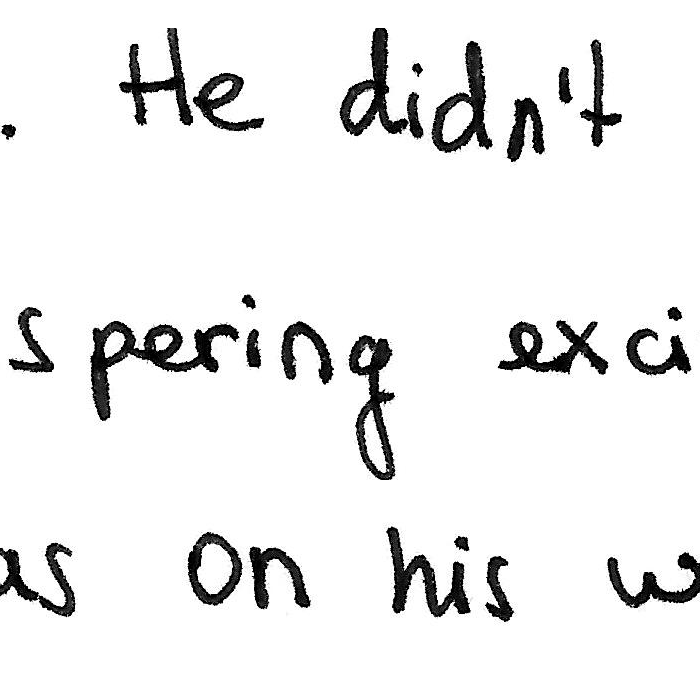 . He didn't
spering exci
as on his w